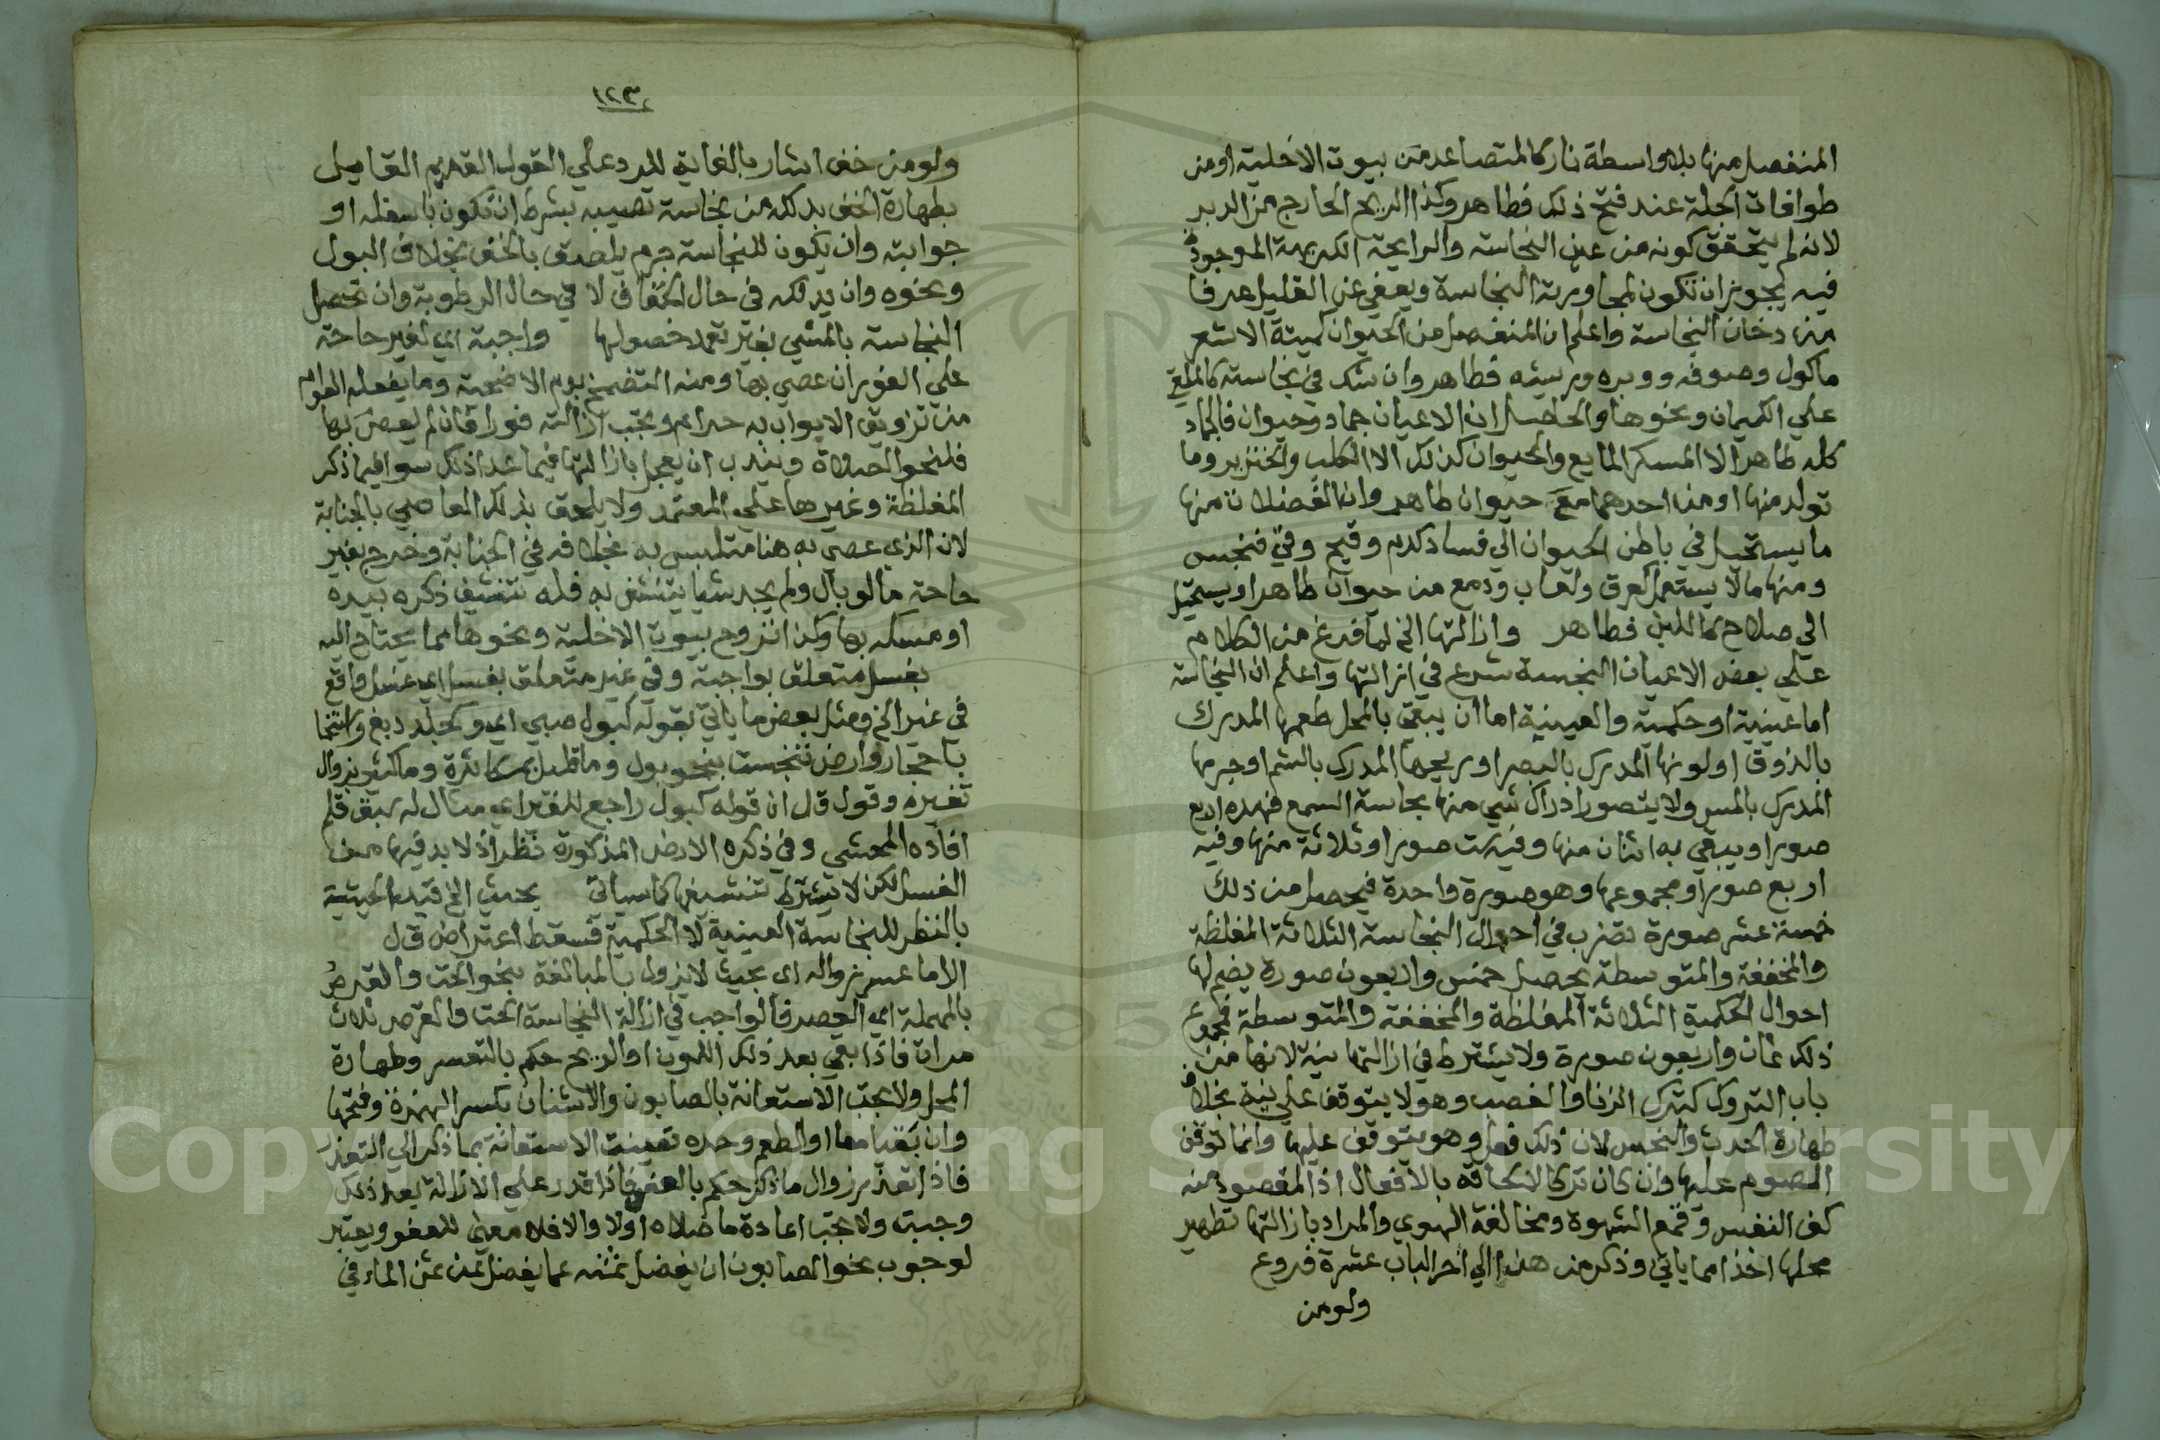 المنفصل منها بلا واسطة نار كالمتصاعد من بيوت الاخلية او من
طوافات الجلة عند فتح ذلك فطاهر وكذا الريح الخارج من الدبر
لانه لم يتحقق كونه من عين النجاسة والرايحة الكريهة الموجودة
فيه يجوز ان تكون لمجاورية النجاسة ويعفي عن القليل عرفا
من دخان النجاسة واعلم ان المنفصل من الحيوان كميتة الا شعر
ماكول وصوفه ووبره وريشه فطاهر وان شك في نجاسته كالملقي
علي الكيمان ونحوها والحاصل ان الاعيان جماد وحيوان فالجماد
كله طاهر الا المسكر المايع والحيوان كذلك الا الكلب والخنزير وما
تولد منها او من احدهما مع حيوان طاهر وان الفضلات منها
ما يستحيل في باطن الحيوان الي فساد كدم وقيح وقي فنجس
ومنها مالا يستحيل كعرق ولعاب ودمع من حيوان طاهر او يستحيل
الي صلاح كاللبن فطاهر وازالتها الخ لما فرغ من الكلام
علي بعض الاعيان النجسة شرع في ازالتها واعلم ان النجاسة
اما عينية او حكمية والعينية اما ان يبقي بالمحل طعمها المدرك
بالذوق او لونها المدرك بالبصر او ريحها المدرك بالشم او جرمها
المدرك بالمس ولا يتصور ادراك شي منها بحاسة السمع فهذه اربع
صور او يبقي به اثنان منها وفيه ست صور او ثلاثة منها وفيه
اربع صور او مجموعها وهو صورة واحدة فيحصل من ذلك
خمسة عشر صورة تضرب في احوال النجاسة الثلاثة المغلظة
والمخففة والمتوسطة يحصل خمس واربعون صورة يضم لها
احوال الحكمية الثلاثة المغلظة والمخففة والمتوسطة فمجموع
ذلك ثمان واربعون صورة ولا يشترط في ازالتها نية لانها من
باب التروك كترك الزنا والغصب وهو لا يتوقف علي نية بخلاف
طهارة الحدث والنجس لان ذلك فعل وهو يتوقف عليها وانما توقف
الصوم عليها وان كان تركا لالتحاقه بالافعال اذ المقصود منه
كف النفس وقمع الشهوة ومخالفة الهوي والمراد بازالتها تطهير
محلها اخذا مما ياتي وذكر من هنا الي اخر الباب عشرة فروع
ولو من
١٢٣
ولو من خف اشار بالغاية للرد علي القول القديم القايل
بطهارة الخف بدلكه من نجاسة تصيبه بشرط ان تكون باسفله او
جوانبه وان يكون للنجاسة جرم يلصق بالخف بخلاف البول
ونحوه وان يدلكه في حال الجفاف لا في حال الرطوبة وان تحصل
النجاسة بالمشي بغير تعمد حصولها واجبة اي لغير حاجة
علي الفور ان عصي بها ومنه التضمخ بدم الاضحية وما يفعله العوام
من تزويق الابواب به حرام وتجب ازالته فورا فان لم يعص بها
فلنحو الصلاة ويندب ان يعجل بازالتها فيما عدا ذلك سوا فيما ذكر
المغلظة وغيرها علي المعتمد ولا يلحق بذلك العاصي بالجنابة
لان الذي عصي به هنا متلبس به بخلافه في الجنابة وخرج بغير
حاجة ما لو بال ولم يجد شيا يتنشف به فله تنشيف ذكره بيده
او مسكه بها وكذا نزوح بيوت الاخلية ونحوها مما يحتاج اليه
بغسل متعلق بواجبة وفي غير متعلق بغسل اي غسل واقع
في غير الخ ومثل بعض ما ياتي بقوله كبول صبي اي وكجلد دبغ واستنجا
باحجار وارض تنجست بنحو بول وما قليل بمكاثرة وما كثير بزوال
تغيره وقول ق ل ان قوله كبول راجع للغير اي مثال له سبق قلم
افاده المحشي وفي ذكره الارض المذكورة نظر اذ لا بد فيها من
الغسل لكن لا يشترط تنشيفها كما سياتي بحيث الخ قيد الحيثية
بالنظر للنجاسة العينية لا الحكمية فسقط اعتراض ق ل
الا ما عسر زواله اي بحيث لا يزول بالمبالغة بنحو الحت والقرص
بالمهملة اي العصر فالواجب في ازالة النجاسة الحت والقرص ثلاث
مرات فاذا بقي بعد ذلك اللون او الريح حكم بالتعسر وطهارة
المحل ولا تجب الاستعانة بالصابون والاشنان بكسر الهمزة وفتحها
وان بقيا معا او الطعم وحده تعينت الاستعانة بما ذكر الي التعذر
فاذا تعذر زوال ما ذكر حكم بالعفو فاذا قدر علي الازالة بعد ذلك
وجبت ولا تجب اعادة ما صلاه اولا والا فلا معني للعفو ويعتبر
لوجوب نحو الصابون ان يفضل ثمنه عما يفضل عن ثمن الماء في
Copyright © King Saud University